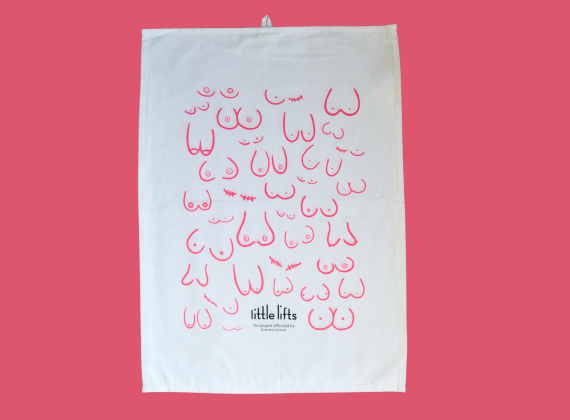 little lifts
for people affected by
breast cancer